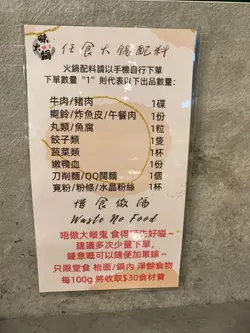 味
火鍋
任食火鍋配料
火鍋配料請以手機自行下單
下單數量“1”則代表以下出品數量:
牛肉/豬肉 1碟
響鈴/炸魚皮/午餐肉 1份
丸類/魚腐 1粒
餃子類 1隻
蔬菜類 1杯
嫩鴨血 1份
刀削麵/QQ闊麵 1個
寬粉/粉條/水晶粉絲 1杯
惜食做満
Waste No Food
唔做大嘥鬼 食得曬先好嗌~
建議多次少量下單,
鍾意嘅可以隨便加單嫁~
只限堂食 枱面/鍋內 淨餘食物
每100g 將收取$30食材費